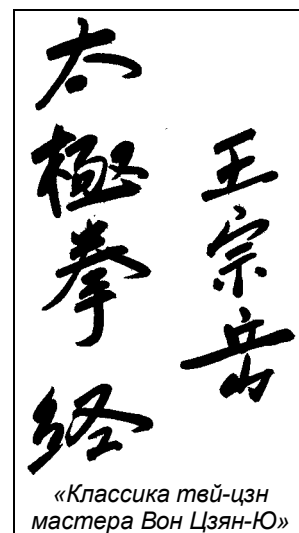 太極拳 经
王宗岳
«Классика твй-цзн
мастера Вон Цзян-Ю»